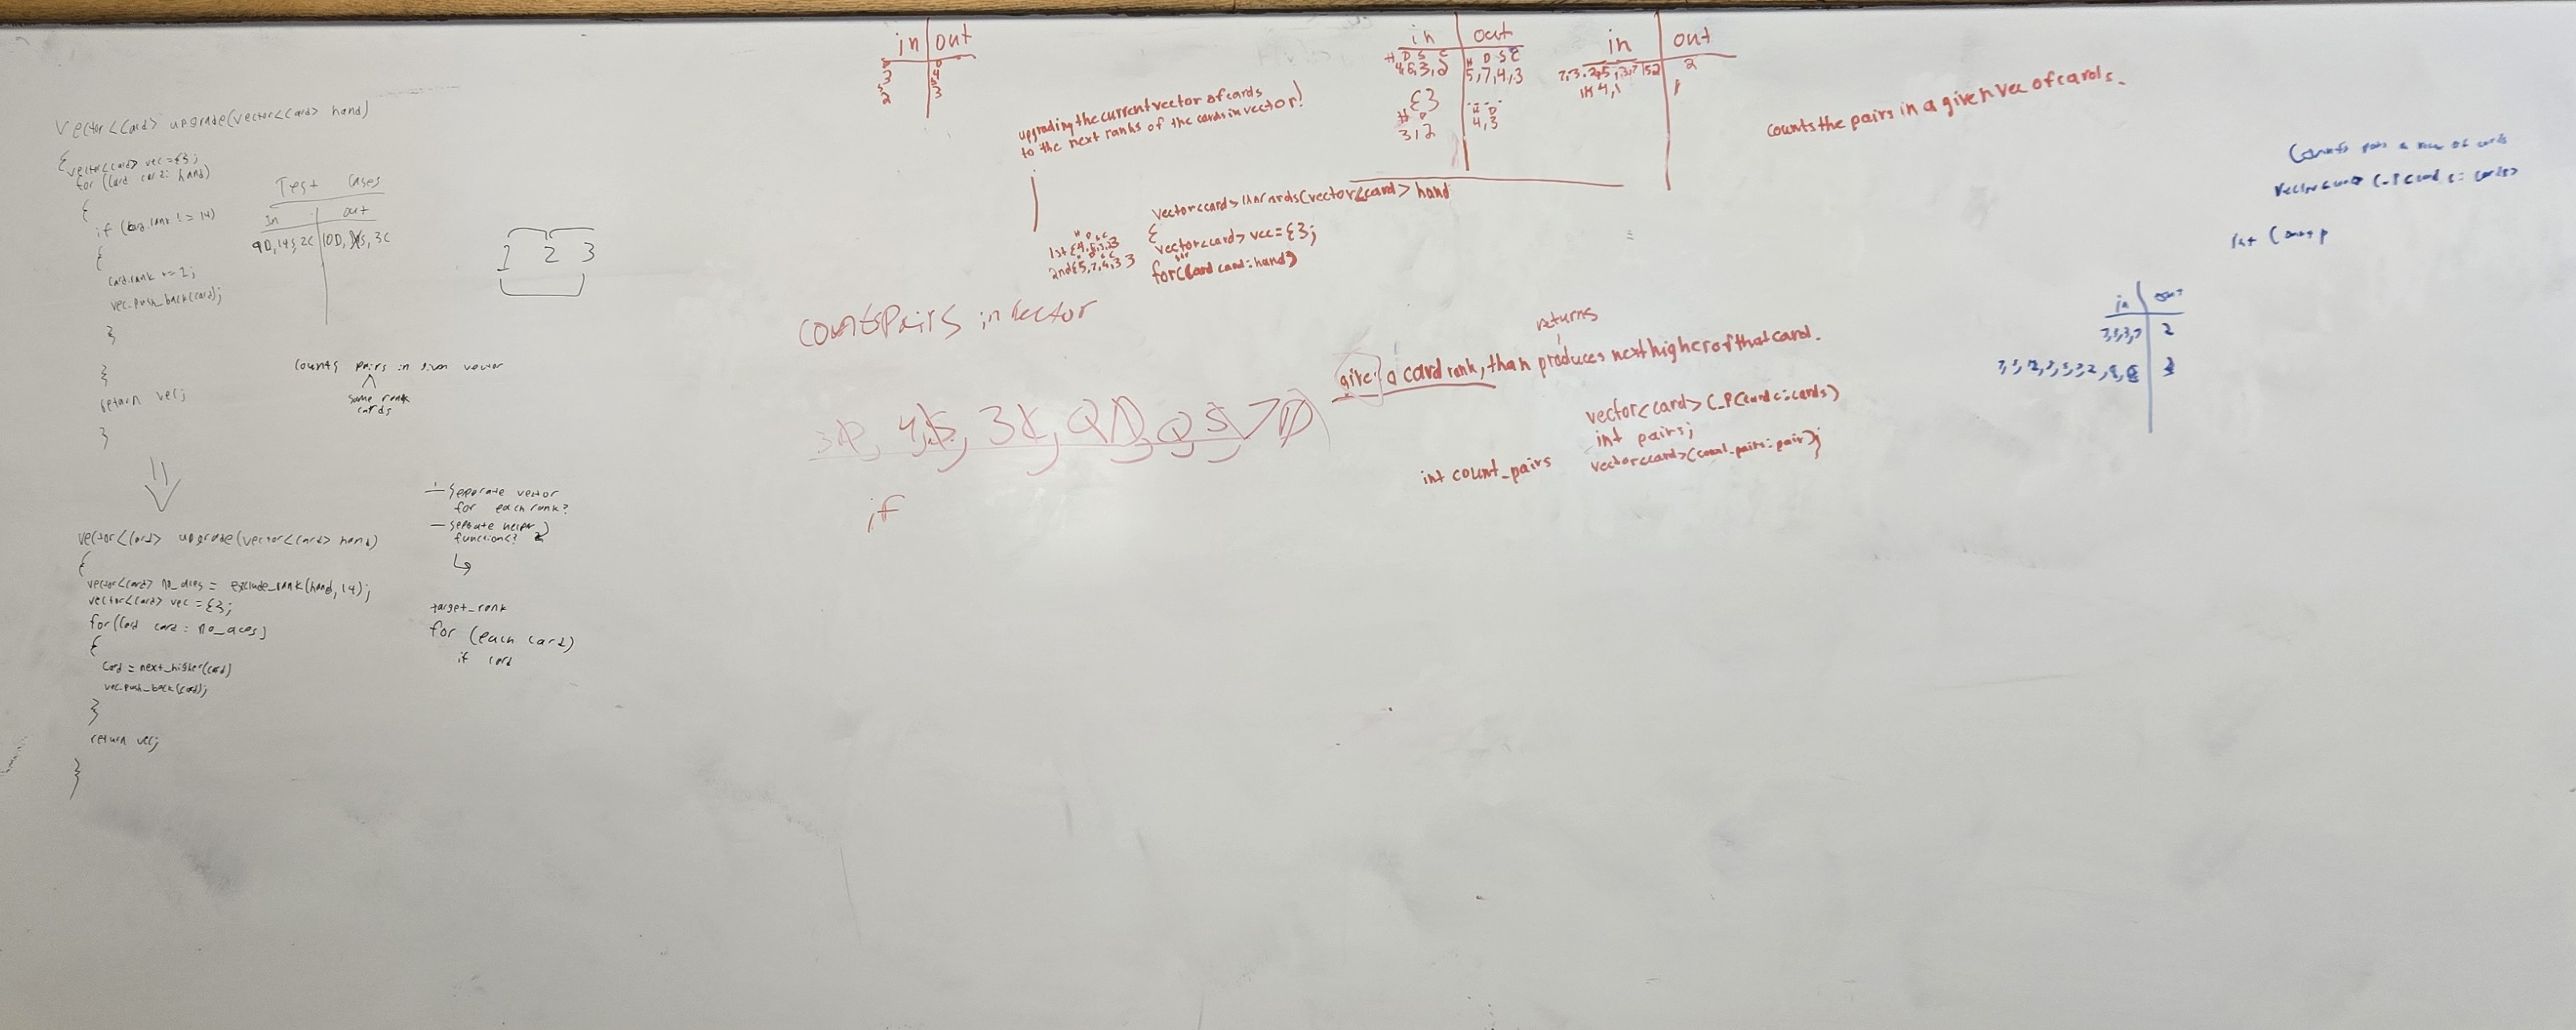 vector<Card> upgrade(vector<Card> hand)
{ vector<card> vec = {};
for (Card card: hand)
{
if (card.rank != 14)
{
card.rank += 1;
vec.push_back(card);
}
}
return vec;
}
Test Cases
In out
9D, 14S, 2C 10D, S, 3C
1 2 3
counts pairs in given vector
same rank
cards
vector<Card> upgrade(vector<card> hand)
{
vector<card> no_aces = exclude_rank(hand, 14);
vector<card> vec = {};
for(Card card: no_aces)
{
card = next_higher(card)
vec.push_back(card);
}
return vec;
}
- Separate vector
for each rank?
- Separate helper
function?
target_rank
for (each card)
if card
in out
3 4
2 3
upgrading the current vector of cards
to the next ranks of the cards in vector!
in out
H D S C H D S C
4,6,3,2 5,7,4,3
{}
H D H D
3,2 4,3
in out
2
1
counts the pairs in a given vec of cards.
vector<card> (vector<card> hand
{
vector<card> vec = {};
for(Card card: hand)
H D S C
1st {4,6,3,2}
2nd {5,7,4,3}
counts Pairs in vector
4S, 3C, QD, QS 7D
if
returns
given a card rank, than produces next higher of that card.
vector<card> C_P(card c: cards)
int pairs;
vector<card>(count_pairs: pair);
int count_pairs
Counts pairs a vec of cards
vector<card> C_P(card c: cards)
int Count p
in out
7,3,3,7 2
3